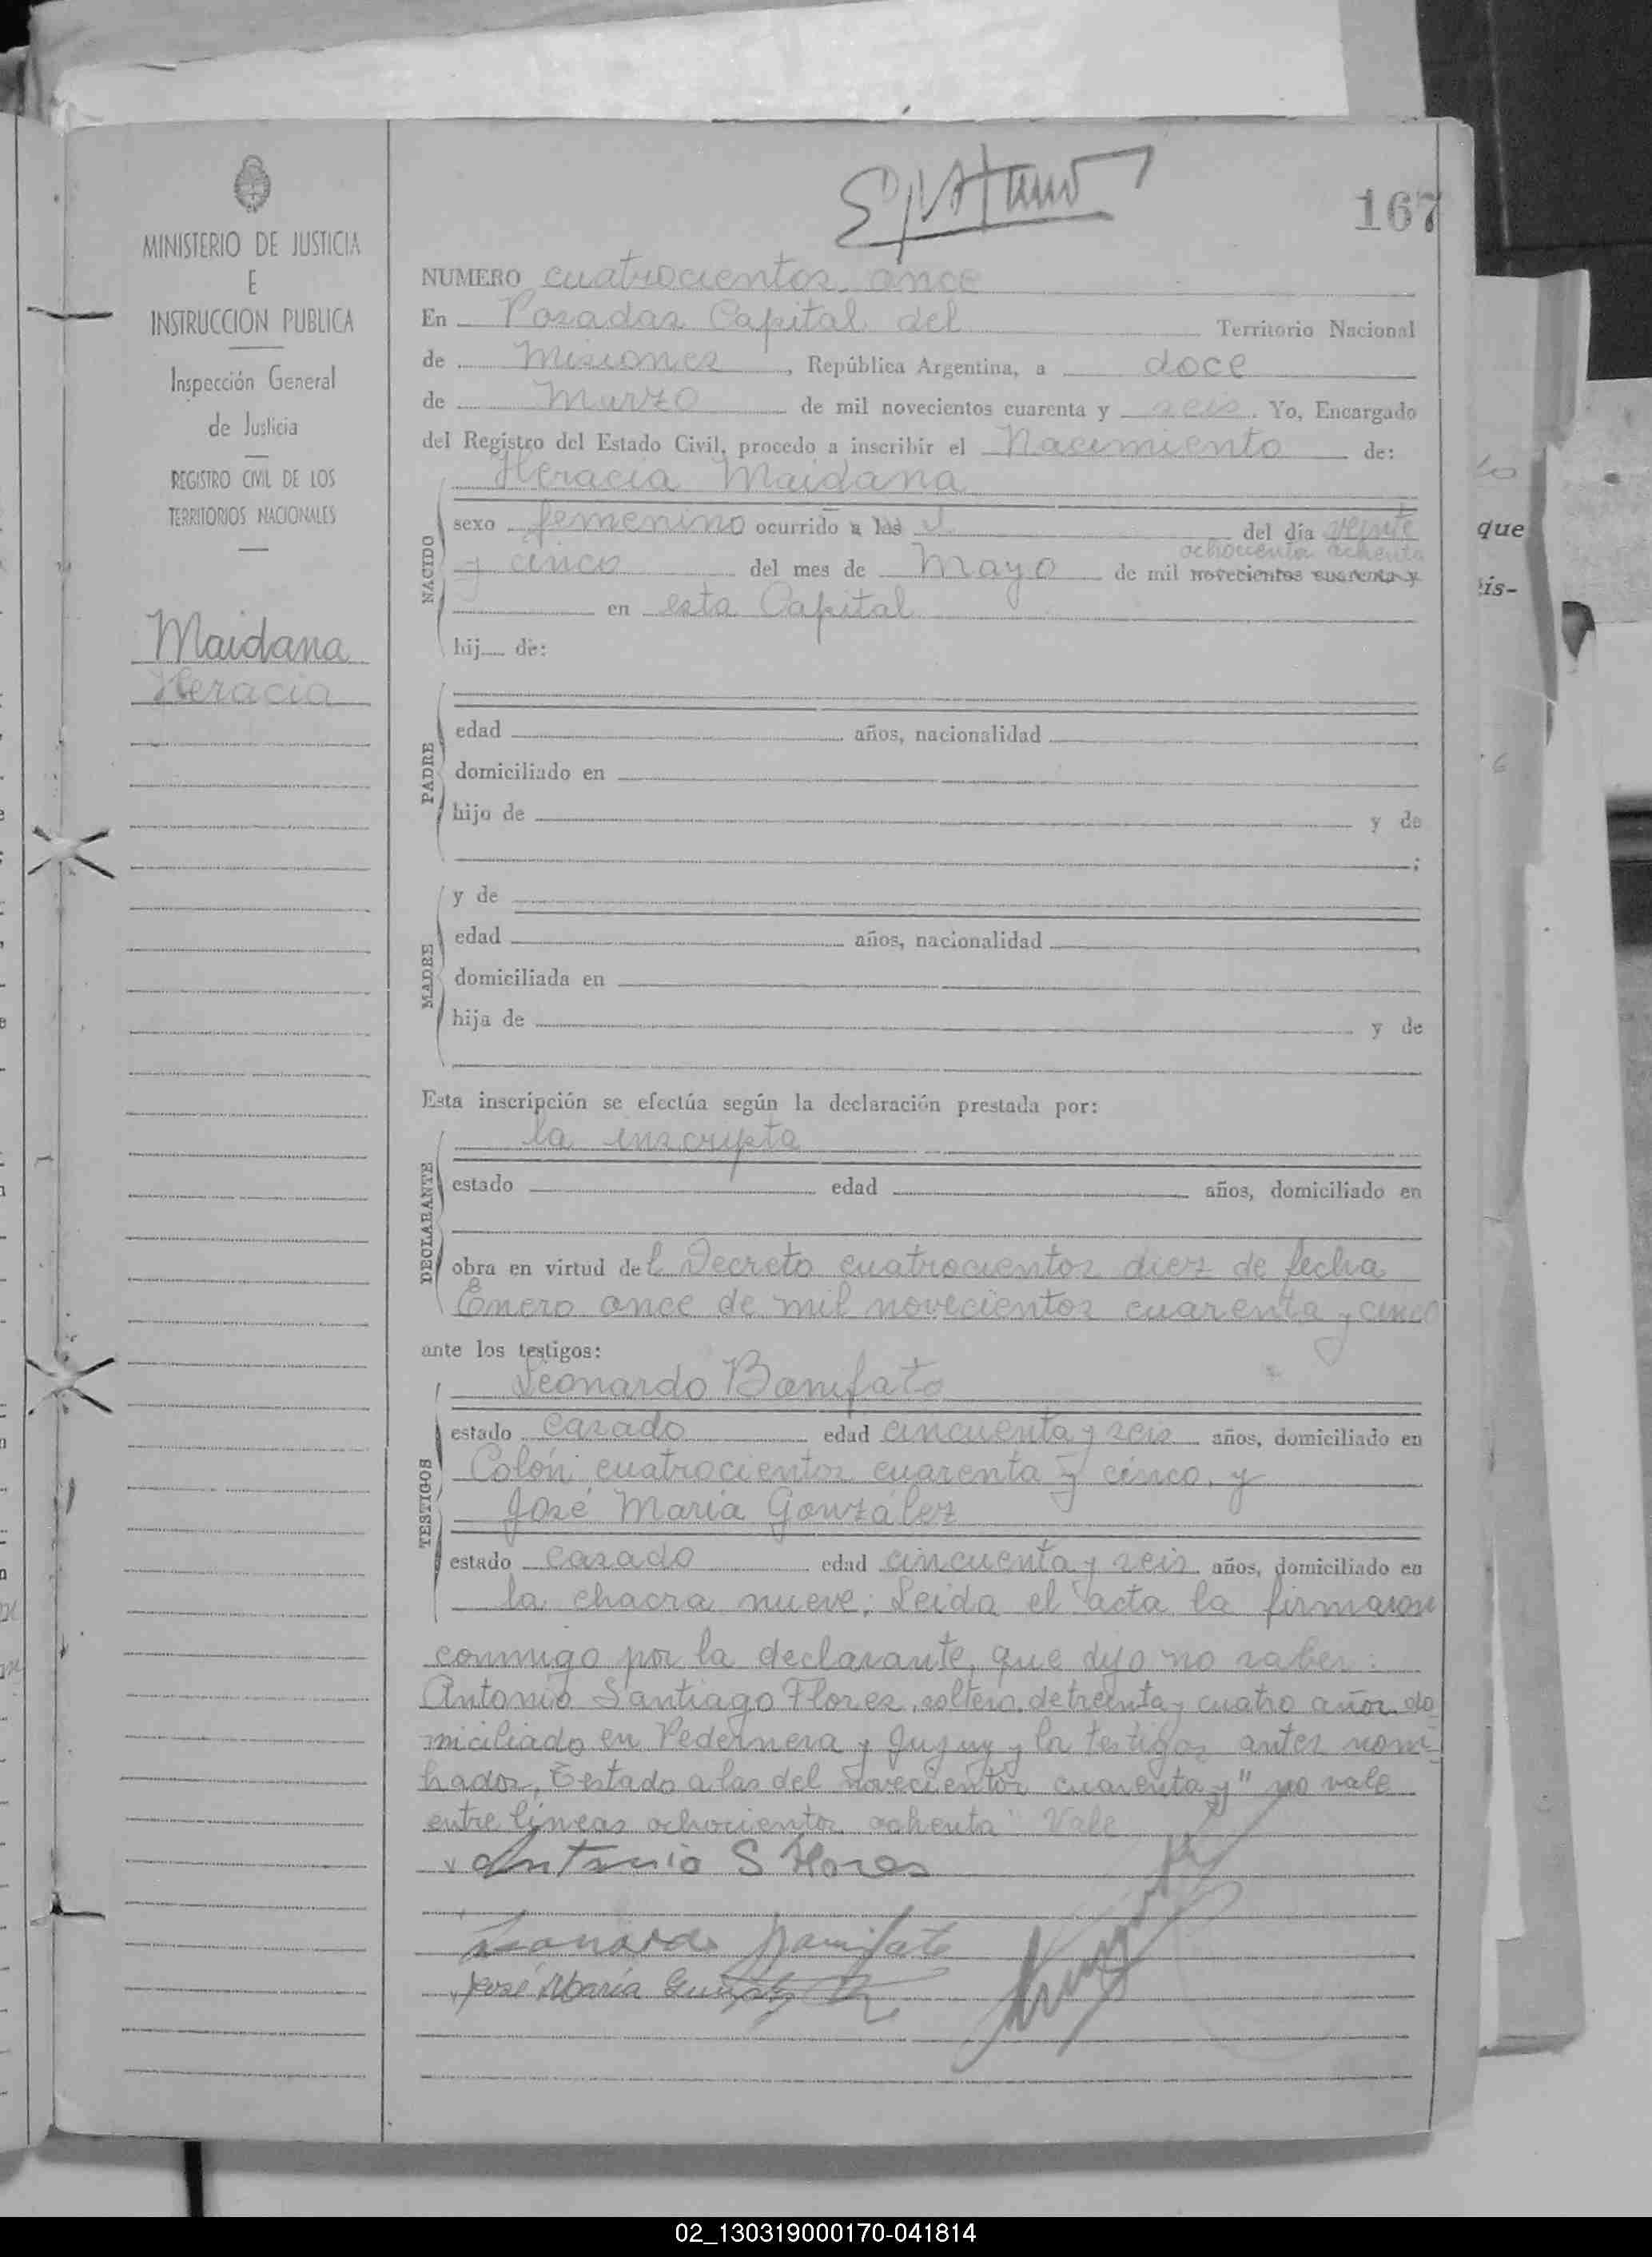 167
MINISTERIO DE JUSTICIA
E
INSTRUCCION PUBLICA
Inspección General
de Justicia
REGISTRO CIVIL DE LOS
TERRITORIOS NACIONALES
Maidana
Heracia
NUMERO cuatrocientos once
En Posadas Capital del Territorio Nacional
de Misiones, República Argentina, a doce
de Marzo de mil novecientos cuarenta y seis. Yo, Encargado
del Registro del Estado Civil, procedo a inscribir el Nacimiento de:
Heracia Maidana
NACIDO
sexo femenino ocurrido a las del día veinte
ochocientos ochenta
y cinco del mes de Mayo de mil novecientos cuarenta y
en esta Capital
hij de:
PADRE
edad años, nacionalidad
domiciliado en
hijo de y de
;
MADRE
y de
edad años, nacionalidad
domiciliada en
hija de y de
Esta inscripción se efectúa según la declaración prestada por:
la inscripta
DECLARANTE
estado edad años, domiciliado en
obra en virtud del Decreto cuatrocientos diez de fecha
Enero once de mil novecientos cuarenta y cinco
ante los testigos:
Leonardo Bonifato
TESTIGOS
estado casado edad cincuenta y seis años, domiciliado en
Colón cuatrocientos cuarenta y cinco, y
José María González
estado casado edad cincuenta y seis años, domiciliado en
la chacra nueve; Leida el acta la firmaron
conmigo por la declarante, que dijo no saber:
Antonio Santiago Flores, soltero, de treinta y cuatro años do
miciliado en Pedernera y Jujuy y los testigos antes nom
brados, Testado a las del novecientos cuarenta y" no vale
entre lineas ochocientos ochenta" Vale
Antonio S Flores
Leonardo Bonifato
José María González
que
is-
02_130319000170-041814